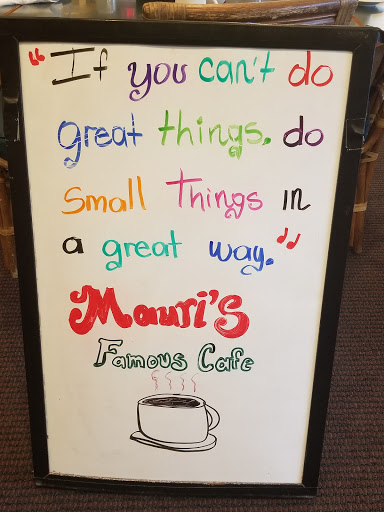 "If you can't do
great things, do
small things in
a great way."
Mauri's
Famous Cafe